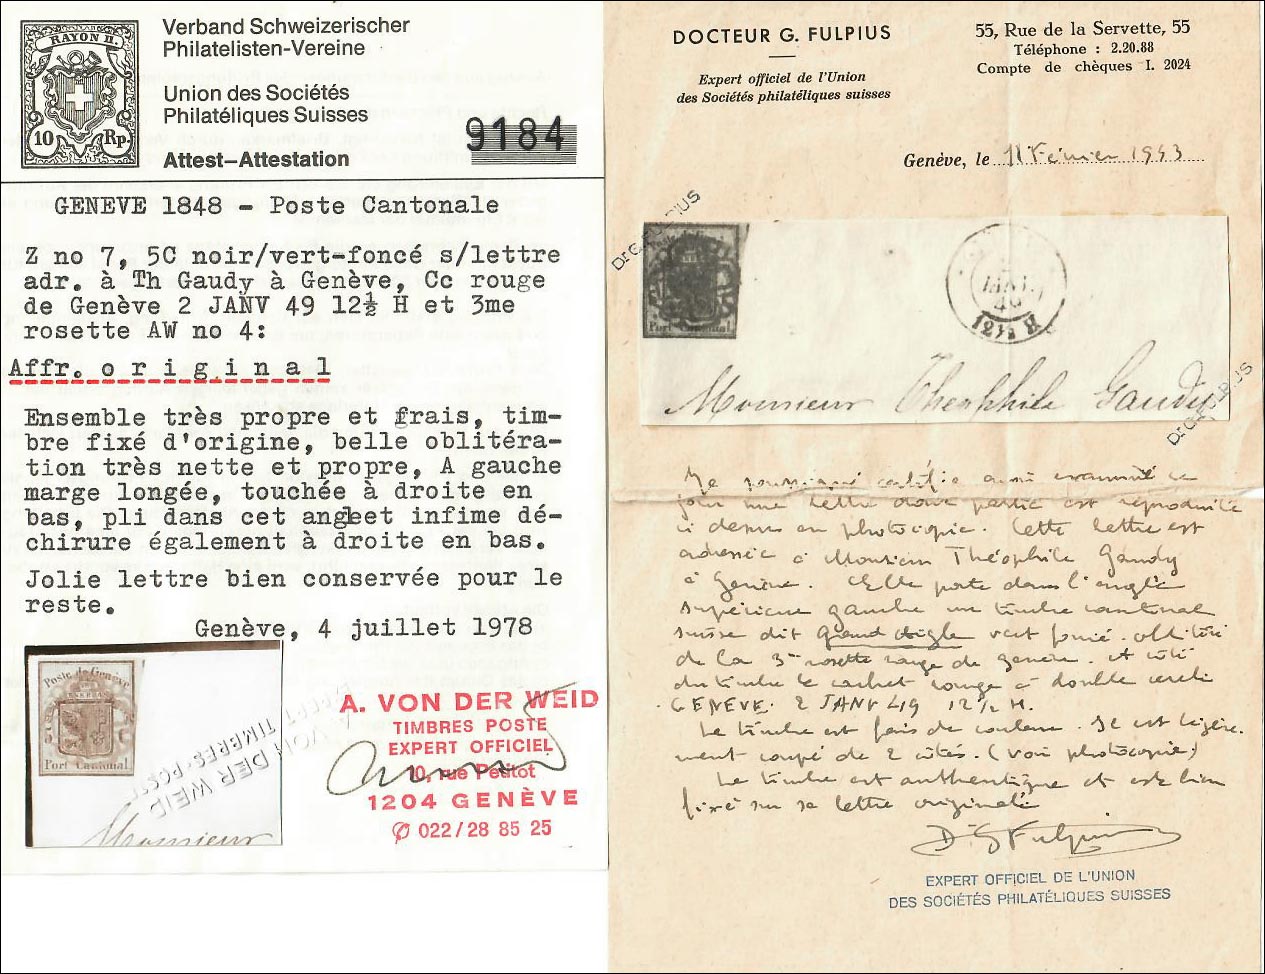 RAYON II.
10 Rp.
Verband Schweizerischer
Philatelisten-Vereine
Union des Sociétés
Philatéliques Suisses
Attest–Attestation
9184
GENEVE 1848 – Poste Cantonale
Z no 7, 5C noir/vert-foncé s/lettre
adr. à Th Gaudy à Genève, Cc rouge
de Genève 2 JANV 49 12½ H et 3me
rosette AW no 4:
Affr. o r i g i n a l
Ensemble très propre et frais, tim–
bre fixé d'origine, belle oblitéra–
tion très nette et propre, A gauche
marge longée, touchée à droite en
bas, pli dans cet angleet infime dé–
chirure également à droite en bas.
Jolie lettre bien conservée pour le
reste.
Genève, 4 juillet 1978
Poste de Genève
Port Cantonal
Monsieur
A. VON DER WEID
TIMBRES-POSTE
A. VON DER WEID
TIMBRES POSTE
EXPERT OFFICIEL
10, rue Petitot
1204 GENÈVE
022/28 85 25
DOCTEUR G. FULPIUS
Expert officiel de l'Union
des Sociétés philatéliques suisses
55, Rue de la Servette, 55
Téléphone : 2.20.88
Compte de chèques I. 2024
Genève, le 11 Février 1943
Dr G. FULPIUS
Port Cantonal
12½ H
Monsieur Theophile Gaudy
Dr G. FULPIUS
Je soussigné certifie avoir examiné ce
jour une lettre dont partie est reproduite
ci dessus en photocopie. Cette lettre est
adressée à Monsieur Théophile Gaudy
à Genève. Elle porte dans l'angle
supérieur gauche un timbre cantonal
suisse dit grand aigle vert foncé oblitéré
de la 3me rosette rouge de Genève. A côté
du timbre le cachet rouge à double cercle
GENEVE 2 JANV 49 12½ H.
Le timbre est frais de couleur. Il est légère-
ment coupé de 2 côtés. (voir photocopie)
Le timbre est authentique et est bien
fixé sur sa lettre originale
Dr G Fulpius
EXPERT OFFICIEL DE L'UNION
DES SOCIÉTÉS PHILATÉLIQUES SUISSES